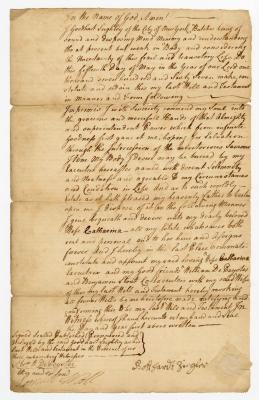 In the Name of God, Amen
I Gotthart Zugler of the City of New York Butcher being of
sound and disposing Mind Memory and understanding
tho at present but weak in Body and considering
the Uncertainty of this frail and transitory Life Do
this fifteenth Day of May in the Year of our Lord one
thousand seven hundred and Sixty Seven make con
stitute and ordain this my last Will and Testament
in Manner and Form following
Imprimis I most sincerely commend my Soul into
the gracious and mercifull Hands of that Almighty
and superintendant Power which from infinite
goodness first gave it me, hoping for Salvation
through the Intercession of the meritorious Saviour
of Men My Body I desire may be buried by my
Executors hereafter named with decent Solemnity
and agreeable to my Circumstances
and Condition in Life And as to such worldly
Estate as it hath pleased my heavenly Father to bestow
upon me I dispose of it in the following Manner
I give bequeath and devise unto my dearly beloved
Wife Catharina all my Estate whatsoever both
real and personal and to her heirs and Assigns
forever And
constitute and appoint my said loving Wife Catharina
Executrix and my good friends William De Peyster
and Benjamin Stout Executors with my said Wife
of this my last Will and Testament hereby revoking
all former Wills by me heretofore made ratifying and
confirming this to be my last Will and Testament In
Witness whereof I have hereunto set my hand and Seal
the Day and Year first above written
Signed Sealed Published Pronounced and
declared by the said Gotthart Zugler as his
last Will and Testament in the Presence of us
Gotthardt Zugler